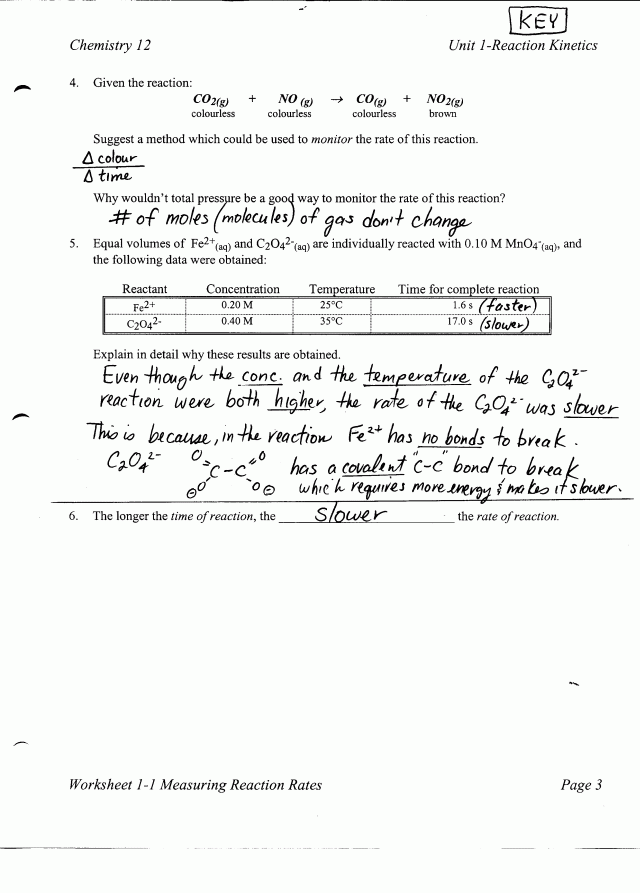 KEY
Chemistry 12 Unit 1-Reaction Kinetics
4. Given the reaction:
CO2(g) + NO (g) → CO(g) + NO2(g)
colourless colourless colourless brown
Suggest a method which could be used to monitor the rate of this reaction.
Δ colour
Δ time
Why wouldn't total pressure be a good way to monitor the rate of this reaction?
# of moles (molecules) of gas don't change
5. Equal volumes of Fe2+(aq) and C2O42-(aq) are individually reacted with 0.10 M MnO4-(aq), and
the following data were obtained:
Reactant Concentration Temperature Time for complete reaction
Fe2+ 0.20 M 25°C 1.6 s (faster)
C2O42- 0.40 M 35°C 17.0 s (slower)
Explain in detail why these results are obtained.
Even though the conc. and the temperature of the C2O42-
reaction were both higher, the rate of the C2O42- was slower
This is because, in the reaction Fe2+ has no bonds to break.
C2O42- O O C-C has a covalent "C-C" bond to break
O⊖ O⊖ which requires more energy & makes it slower.
6. The longer the time of reaction, the slower the rate of reaction.
Worksheet 1-1 Measuring Reaction Rates Page 3